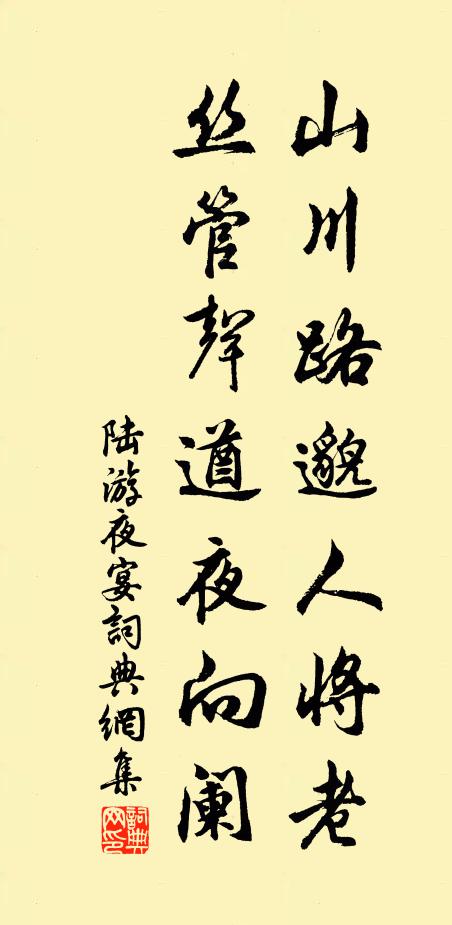 山川路邈人将老
丝管聲遒夜向阑
陆游夜宴詞典網集
詞典网印